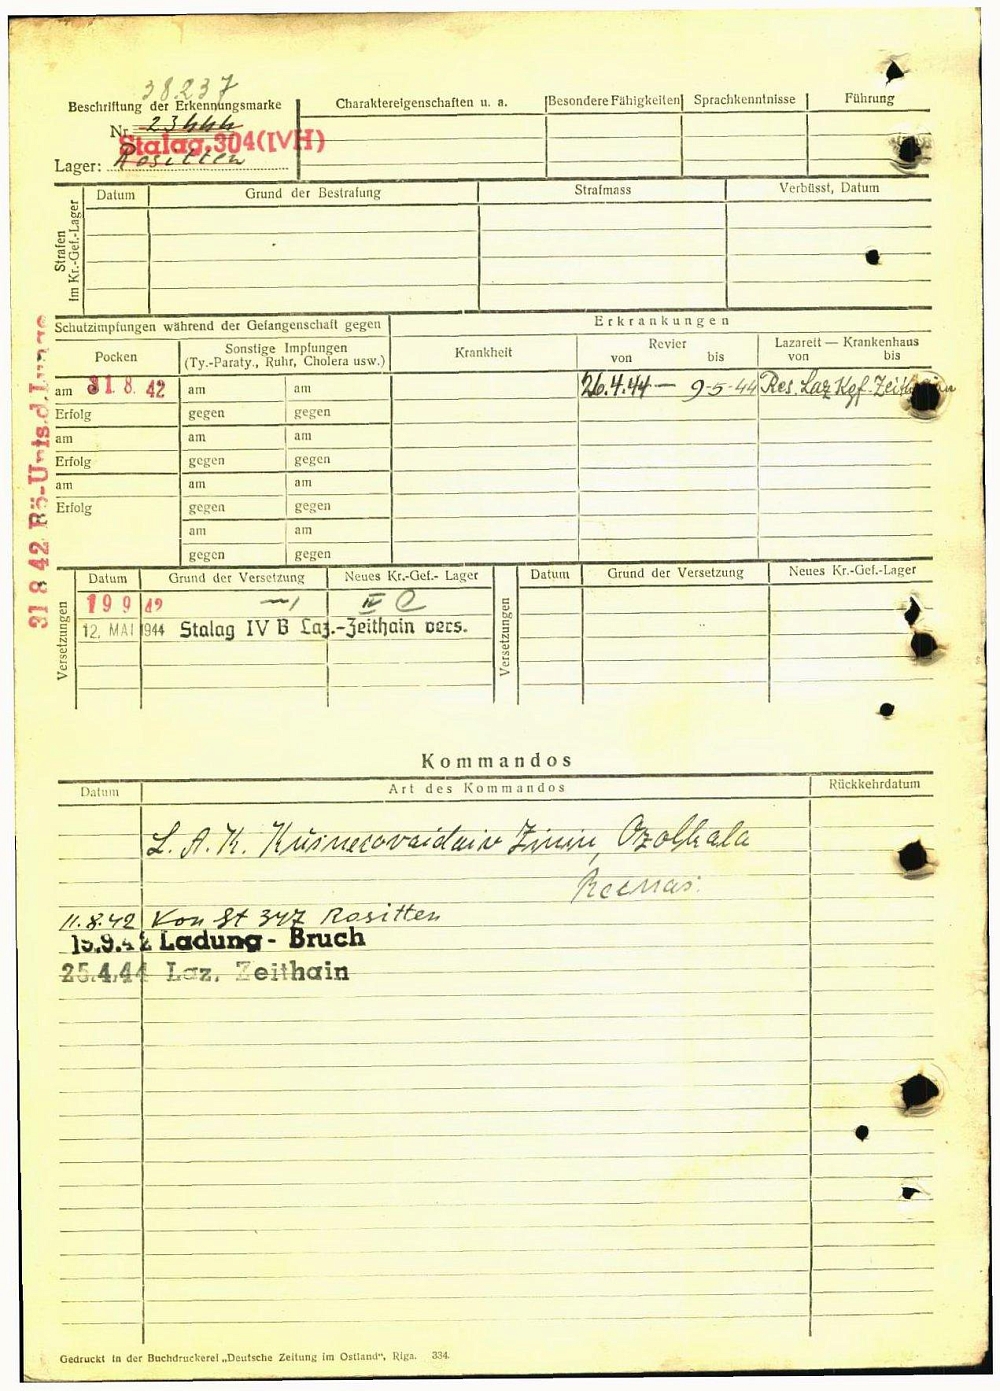 38237
Beschriftung der Erkennungsmarke
Nr. 23444
Stalag 304 (IVH)
Lager: Rositten
Charaktereigenschaften u. a.
Besondere Fähigkeiten
Sprachkenntnisse
Führung
Strafen im Kr.-Gef.-Lager
Datum
Grund der Bestrafung
Strafmass
Verbüsst, Datum
31 8 42 Rö-Unts.d.Lunge
Schutzimpfungen während der Gefangenschaft gegen
Pocken
Sonstige Impfungen
(Ty.-Paraty., Ruhr, Cholera usw.)
am 31. 8. 42 am am
Erfolg gegen gegen
am am am
Erfolg gegen gegen
am am am
Erfolg gegen gegen
am am
gegen gegen
Erkrankungen
Krankheit
Revier
von bis
Lazarett — Krankenhaus
von bis
26.4.44 — 9-5-44 Res. Laz Kgf. Zeithain
Versetzungen
Datum Grund der Versetzung Neues Kr.-Gef.- Lager
19 9 42 IV C
12. MAI 1944 Stalag IV B Laz.-Zeithain vers.
Versetzungen
Datum Grund der Versetzung Neues Kr.-Gef.-Lager
Kommandos
Datum Art des Kommandos Rückkehrdatum
L. A. K.
11.8.42 Von St 347 Rositten
15.9.42 Ladung - Bruch
25.4.44 Laz. Zeithain
Gedruckt in der Buchdruckerei „Deutsche Zeitung im Ostland“, Riga. 334.